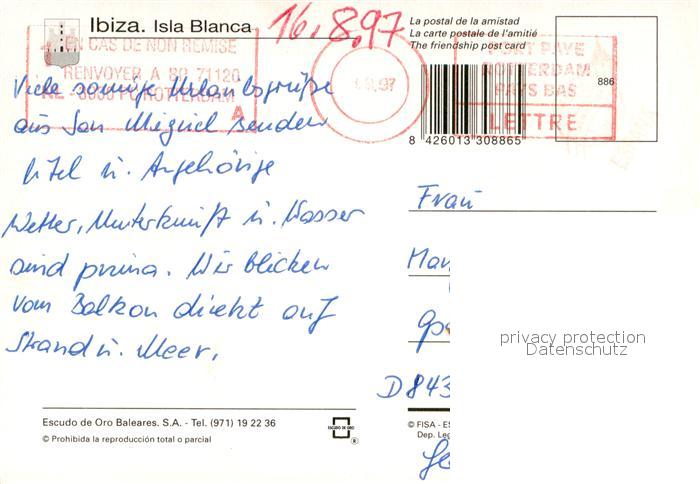 Ibiza. Isla Blanca
16.8.97
La postal de la amistad
La carte postale de l'amitié
The friendship post card
EN CAS DE NON REMISE
RENVOYER A BP 71120
ROTTERDAM
A
97
PORT PAYE
ROTTERDAM
PAYS BAS
LETTRE
886
8 426013 308865
Viele sonnige Urlaubsgrüße
aus San Miguel senden
u. Angehörige
Wetter, Unterkunft u. Wasser
sind prima. Wir blicken
vom Balkon direkt auf
Strand u. Meer.
Frau
D 843
privacy protection
Datenschutz
Escudo de Oro Baleares. S.A. - Tel. (971) 19 22 36
© Prohibida la reproducción total o parcial
ESCUDO DE ORO
®
© FISA - ES
Dep. Leg